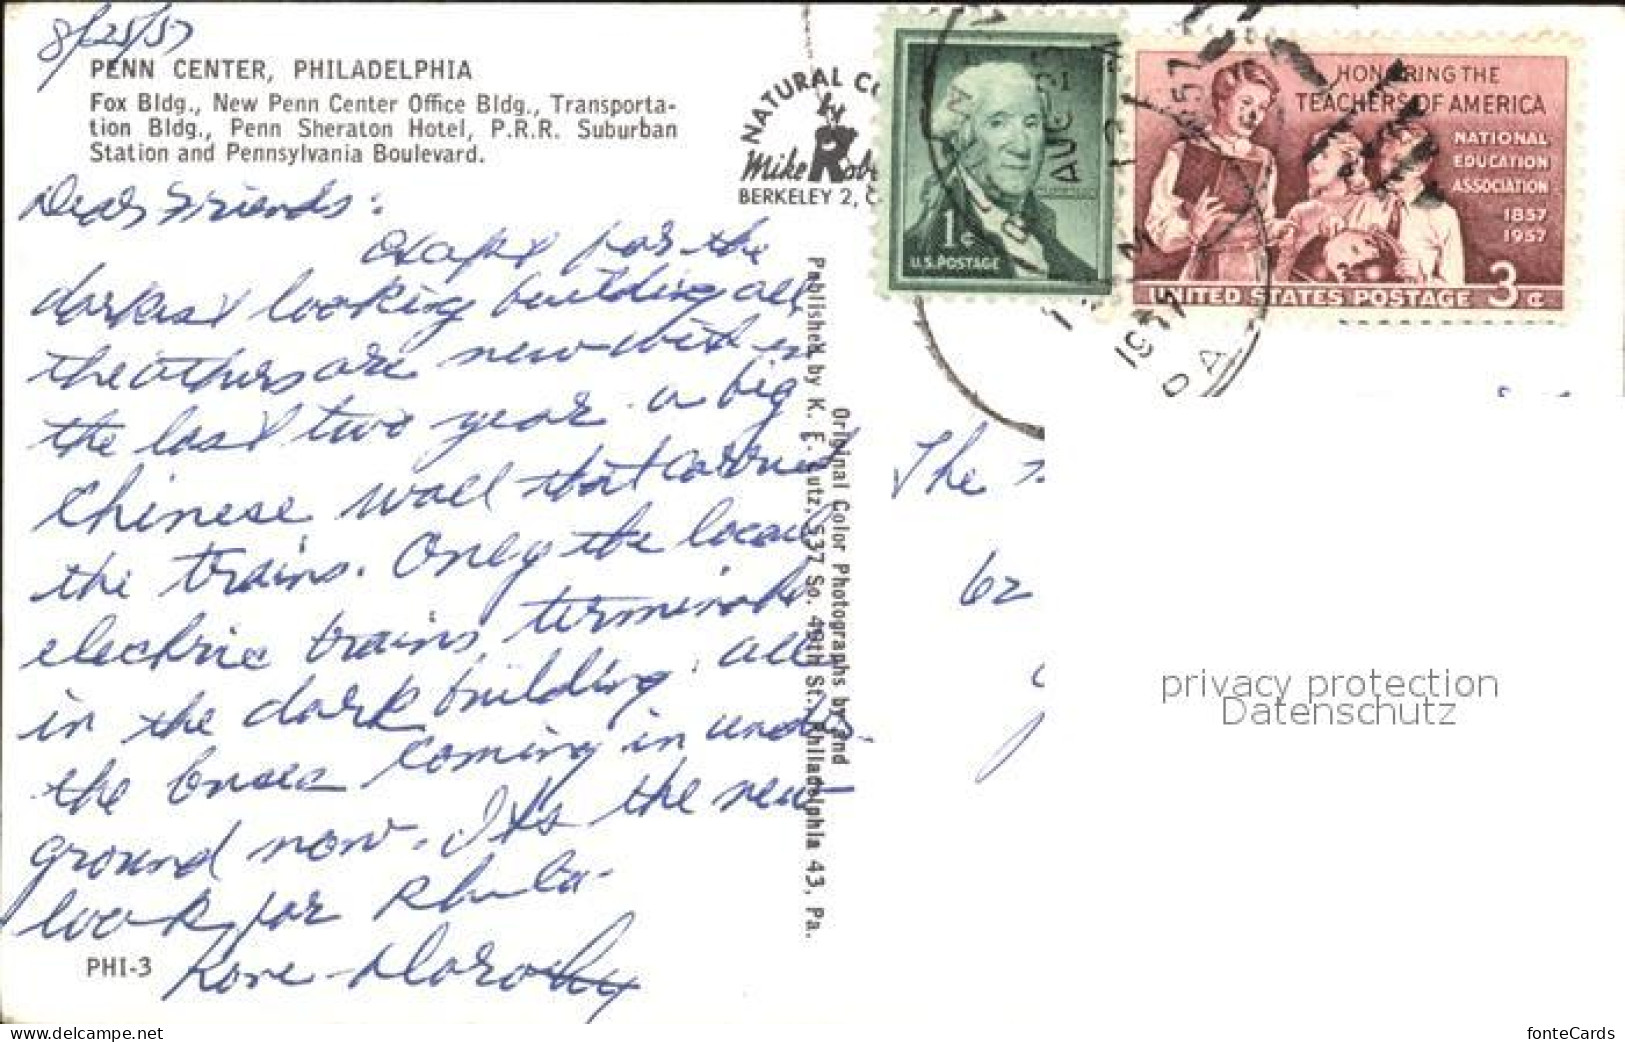 8/25/57
PENN CENTER, PHILADELPHIA
Fox Bldg., New Penn Center Office Bldg., Transporta-
tion Bldg., Penn Sheraton Hotel, P.R.R. Suburban
Station and Pennsylvania Boulevard.
Dear Friends:
for the
darkest looking building all
the others are new with in
the last two year a big
Chinese wall that carried
the trains. Only the local
electric trains terminate
in the dark building. all
the buses coming in under-
ground now. It's the new
look for Phila.
Love Dorothy
PHI-3
NATURAL CO
by
Mike Robe
BERKELEY 2, C
Published by K. F. Lutz, 537 So. 49th St., Philadelphia 43, Pa.
Original Color Photographs by and
1¢
U.S. POSTAGE
AUG
1957
PA
HONORING THE
TEACHERS OF AMERICA
NATIONAL
EDUCATION
ASSOCIATION
1857
1957
UNITED STATES POSTAGE 3¢
The
62
privacy protection
Datenschutz
www.delcampe.net
fonteCards